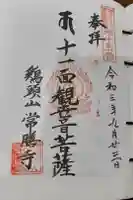 奉拝
令和三年九月廿三日
十一面觀世音菩薩
鷄頭山 常勝寺